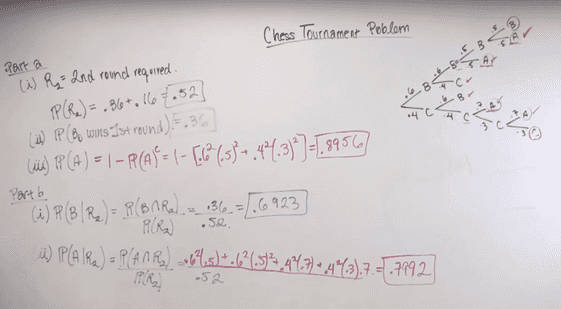 Chess Tournament Poblem
Part a
(i) R₂ = 2nd round required.
P(R₂) = .36 + .16 = .52
(ii) P(Bo wins 1st round) = .36
(iii) P(A) = 1 - P(A)ᶜ = 1 - [.6²(.5)² + .4²(.3)²] = .8956
Part b
(i) P(B|R₂) = P(B∩R₂) / P(R₂) = .36 / .52 = .6923
ii) P(A|R₂) = P(A∩R₂) / P(R₂) = .6²(.5) + .6²(.5)² + .4²(.7) + .4²(.3).7 / .52 = .7992
.6 B .6 B .5 B .5 B
.5 A
.5 A
.4 C
.4 C .6 B
.4 C .7 A
.3 C .7 A
.3 C